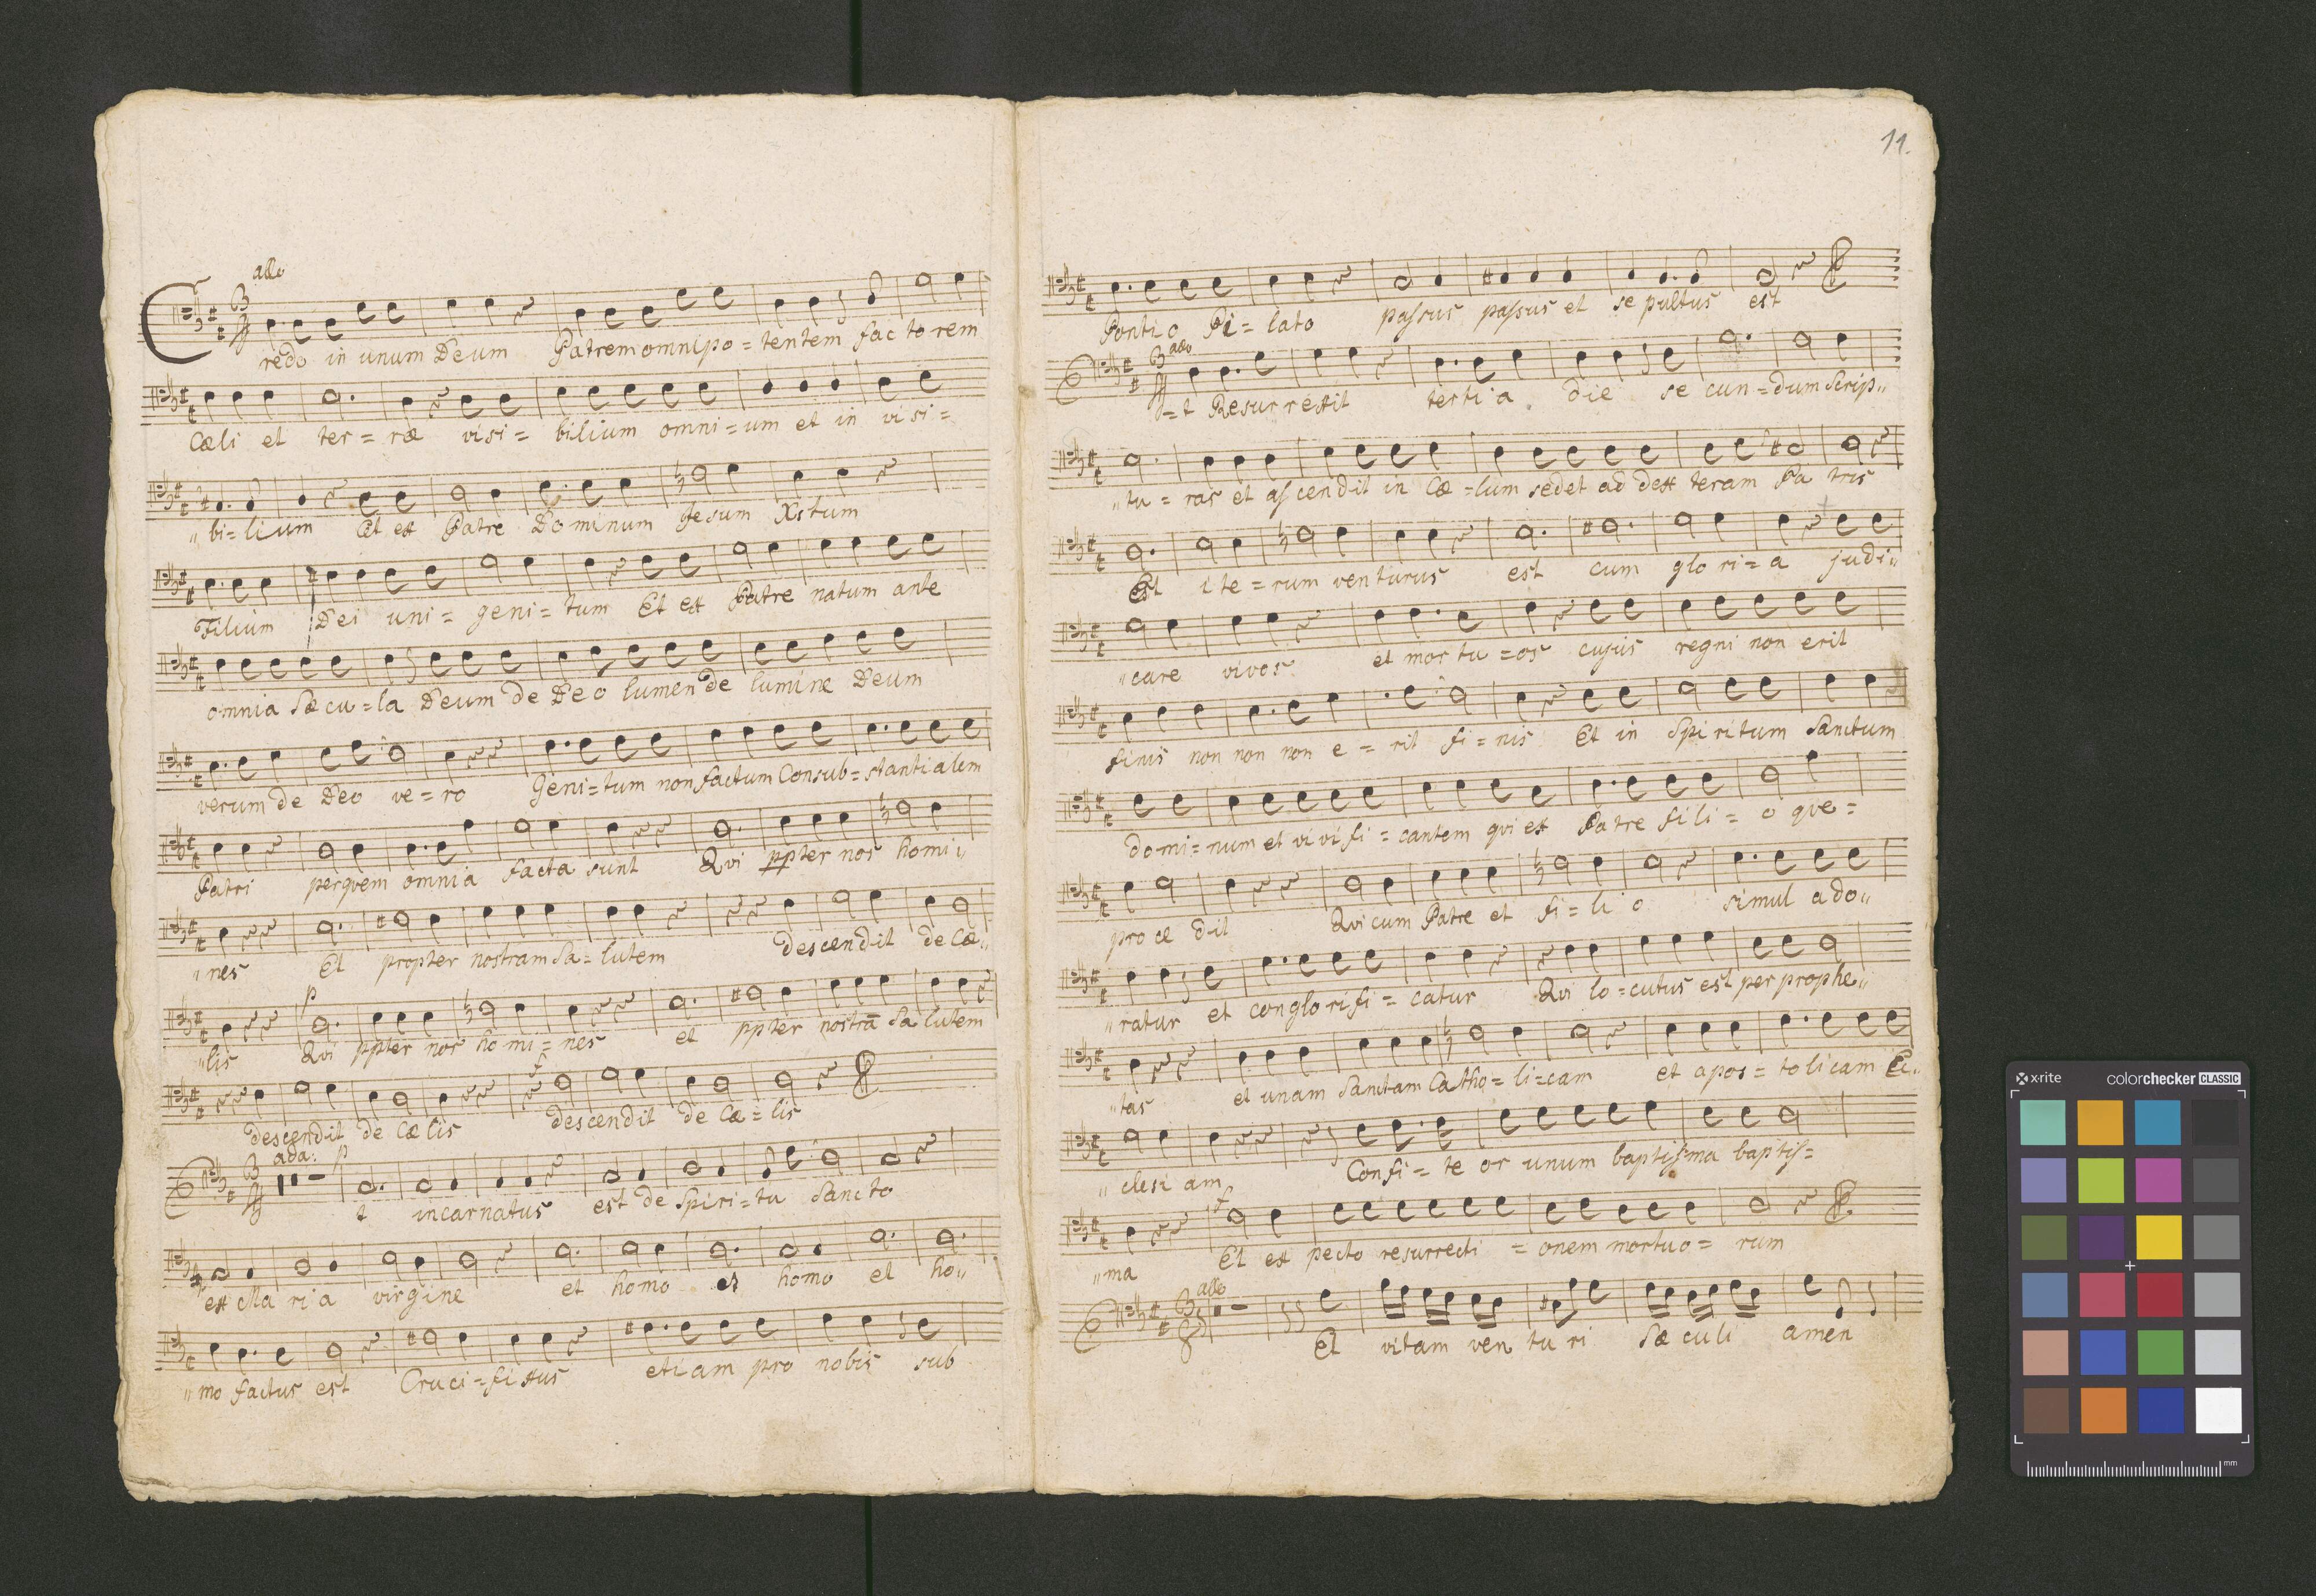 allo
Credo in unum Deum Patrem omnipo = tentem factorem
Cæli et ter = ræ visi = bilium omni = um et in visi =
" bi = lium Et ex Patre Dominum Jesum Xstum
Filium Dei uni = geni = tum Et ex Patre natum ante
omnia Sæcu = la Deum de Deo lumen de lumine Deum
verum de Deo ve = ro Geni = tum non factum Consub = stantialem
Patri per quem omnia facta sunt Qui ppter nos homi "
ines Et propter nostram Sa = lutem descendit de Cæ "
p
" lis Qui ppter nos homi = nes et ppter nostrā Sa lutem
f
descendit de Cælis descendit de Cæ = lis
ada: p
Et incarnatus est de Spiri = tu Sancto
ex Maria virgine et homo et homo et ho "
" mo factus est Cruci = fixus etiam pro nobis sub
11.
Pontio Pi = lato passus passus et se pultus est
allo
Et Resurrexit tertia die se cun = dum Scrip "
" tu = ras et ascendit in Cæ = lum sedet ad dex teram Pa tris
Et ite = rum venturus est cum glo ri = a judi "
" care vivos et mor tu = os cujus regni non erit
finis non non non e = rit fi = nis Et in Spiritum Sanctum
do mi = num et vivifi = cantem qui ex Patre fili = o que =
pro ce dit Qui cum Patre et fi = li o simul ado "
" ratur et conglorifi = catur Qui lo = cutus est per prophe "
" tas et unam Sanctam Catho = li = cam et apos = tolicam Ec "
" clesi am Confi = te or unum baptisma baptis =
f
" ma Et ex pecto resurrecti = onem mortuo = rum
allo
Et vitam ven tu ri Sæ culi amen
x-rite colorchecker CLASSIC
mm